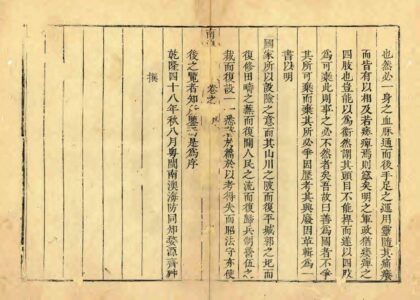 也然必一身之血脉通而後手足之運用靈隨其痛癢
而皆有以相及若痿痺焉則懲矣明之軍政猶痿痺之
四肢也豈能以為衛然謂其頭目不能捍而遂以四肢
為可棄此則事之必不然者矣吾故曰善為國者不爭
其所可棄而棄其所必爭因歷考其興廢因革輯為一
書以明
國家所以設險之意而其山川之險而復平城郭之圯而
復修田疇之蕪而復闢人民之流而復歸兵制營伍之
裁而復設一一悉於篇於以考得失而昭法守亦使
後之覽者知鑒焉是為序
乾隆四十八年秋八月粵閩南澳海防同知婺源齊翀
撰
南
卷之